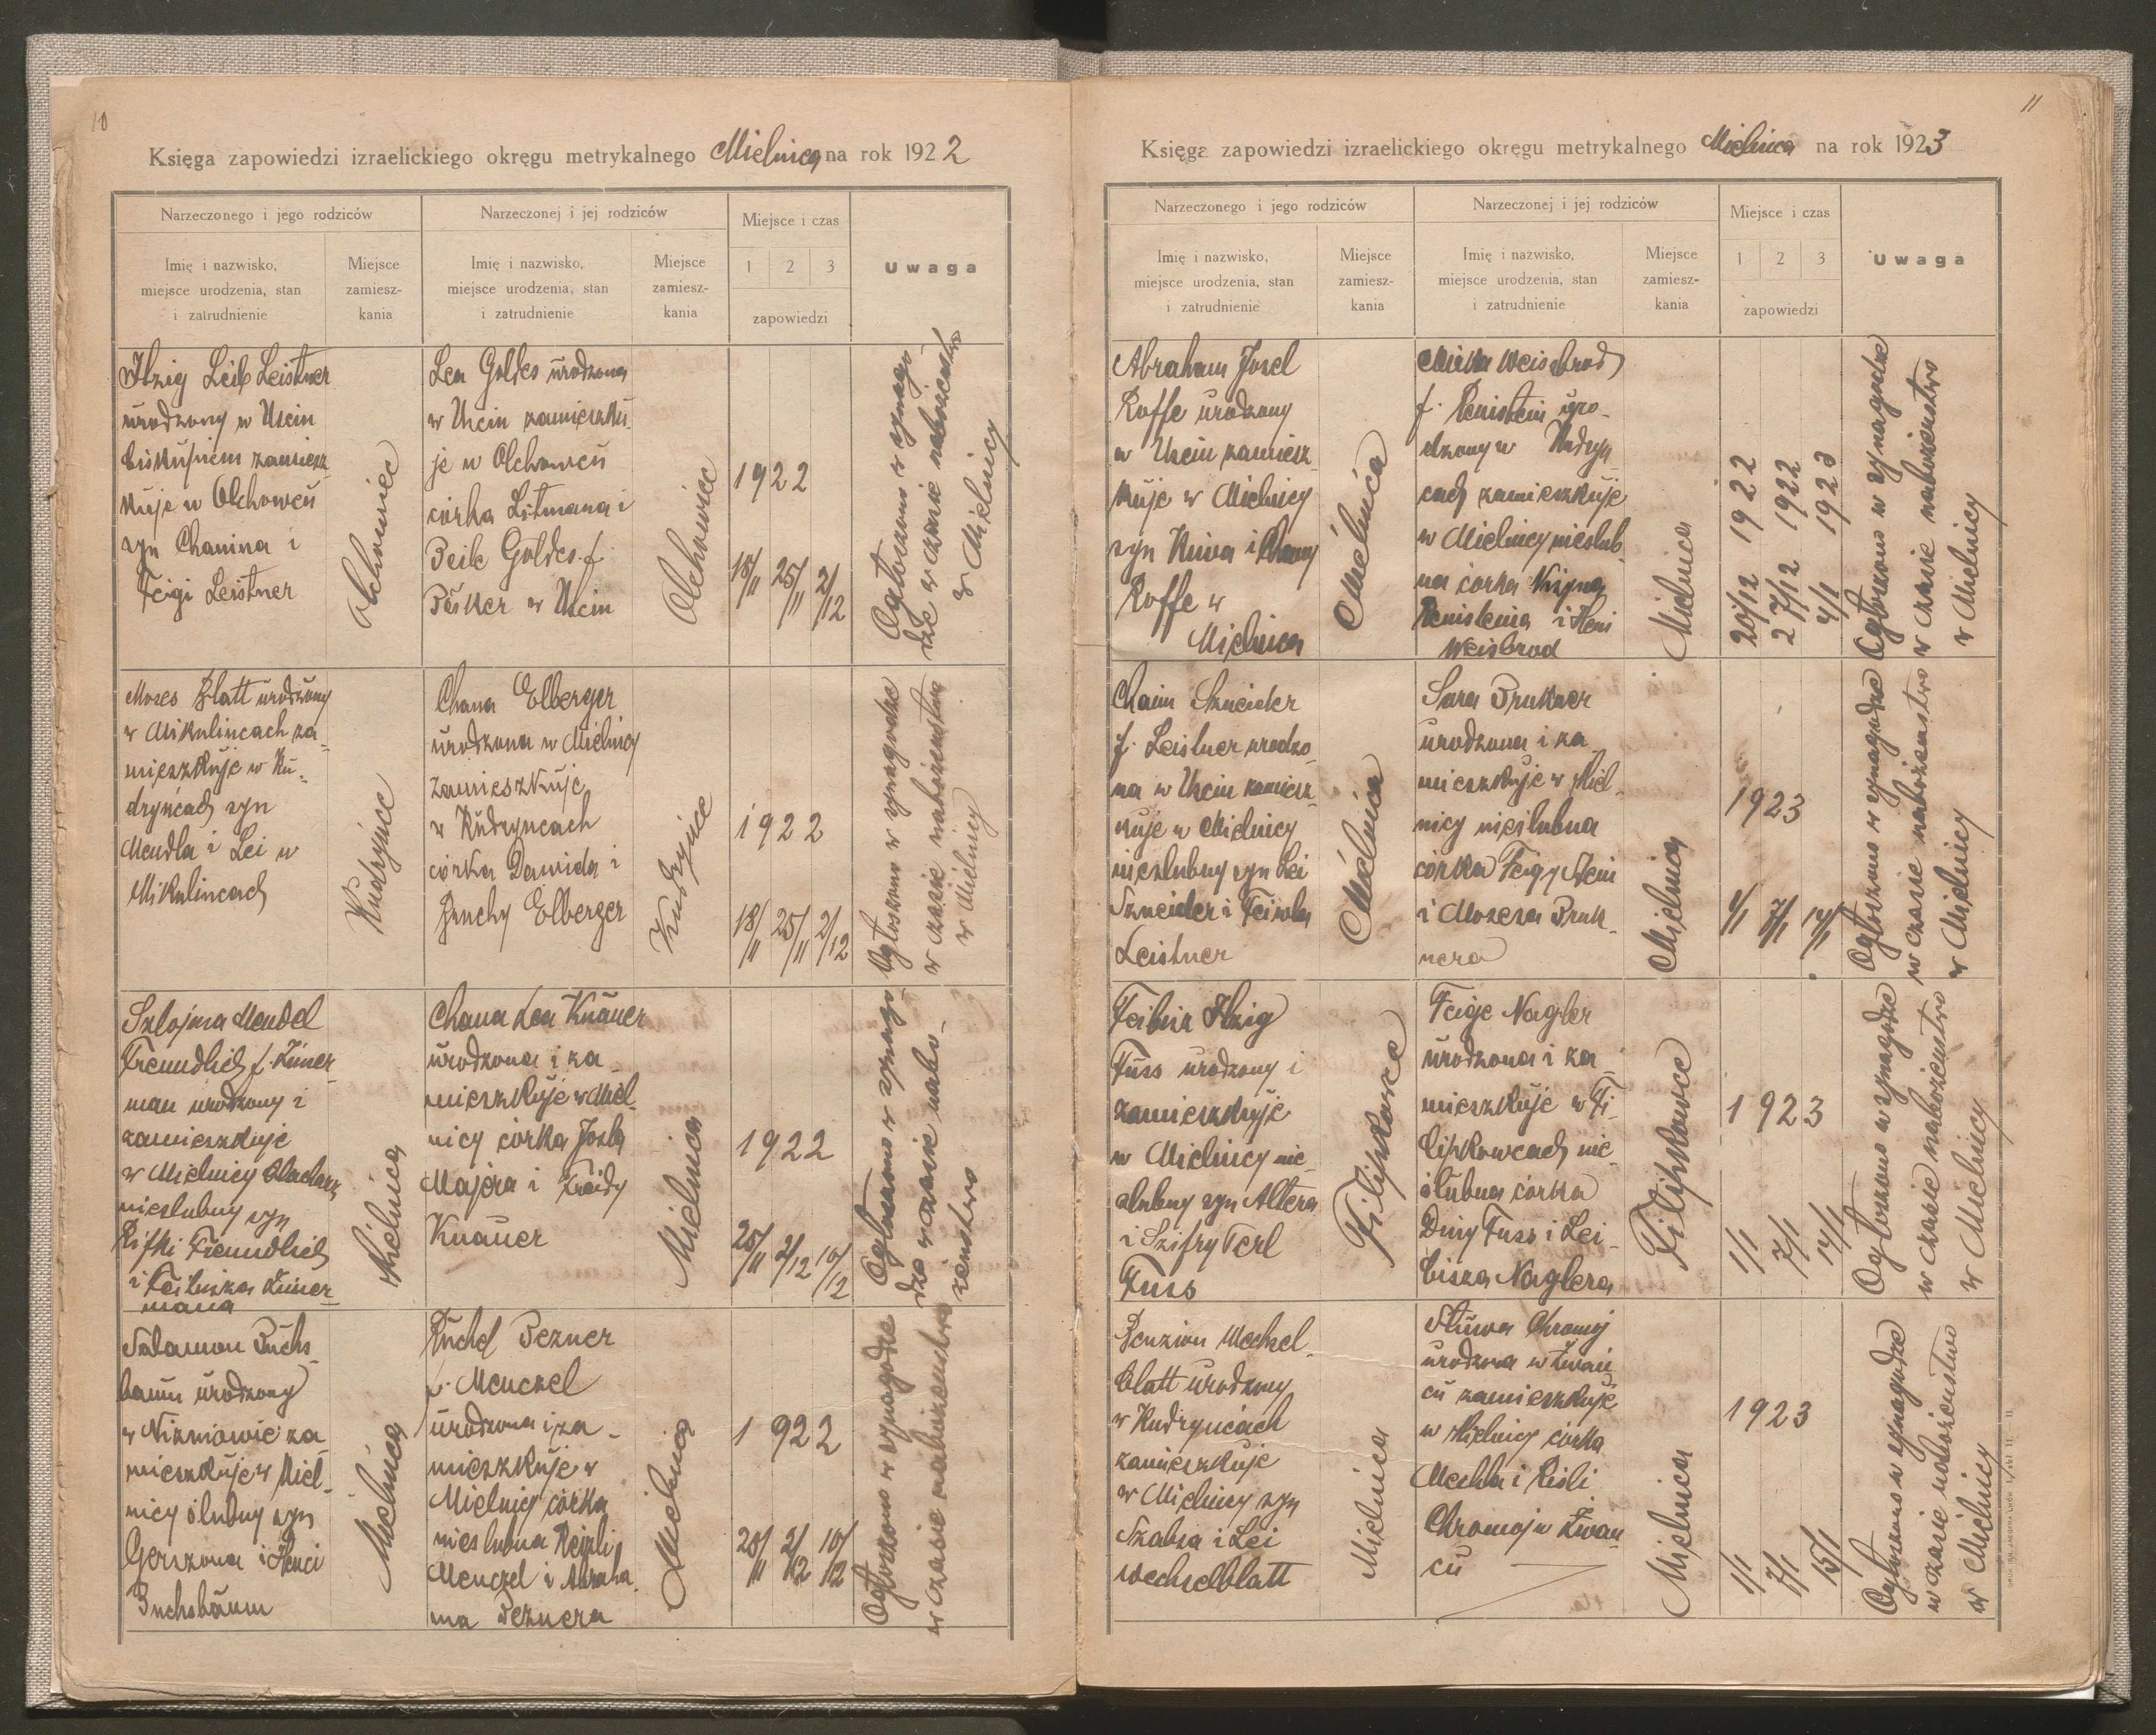 10
Księga zapowiedzi izraelickiego okręgu metrykalnego Mielnica na rok 1922
Narzeczonego i jego rodziców
Narzeczonej i jej rodziców
Miejsce i czas
Uwaga
Imię i nazwisko,
miejsce urodzenia, stan
i zatrudnienie
Miejsce
zamiesz-
kania
Imię i nazwisko,
miejsce urodzenia, stan
i zatrudnienie
Miejsce
zamiesz-
kania
1 2 3
zapowiedzi
Itzig Leib Leistner
urodzony w Uściu
biskupiem zamiesz
kuje w Olchowcu
syn Chanina i
Feigi Leistner
Olchowiec
Lea Goldes urodzona
w Uściu zamieszku
je w Olchowcu
córka Litmana i
Beile Goldes f.
Pesker w Uściu
Olchowiec
1922
18/11 25/11 2/12
Ogłoszono w synago-
dze w czasie nabożeństwa
w Mielnicy
Moses Blatt urodzony
w Mikulincach za-
mieszkuje w Ku-
dryńcach syn
Mendla i Lei w
Mikulincach
Kudryńce
Chana Elberger
urodzona w Mielnicy
zamieszkuje
w Kudryncach
córka Dawida i
Bruchy Elberger
Kudryńce
1922
18/11 25/11 2/12
Ogłoszono w synagodze
w czasie nabożeństwa
w Mielnicy
Szlojma Mendel
Freundlich f. Zimer-
man urodzony i
zamieszkuje
w Mielnicy
nieślubny syn
Rifki Freundlich
i Feibisza Zimer-
mana
Mielnica
Chana Lea Knauer
urodzona i za-
mieszkuje w Miel-
nicy córka Josla
Majera i Fraidy
Knauer
Mielnica
1922
25/11 2/12 10/12
Ogłoszono w synago-
dze w czasie nabo-
żeństwa
Salamon Buchs-
baum urodzony
w Niżniowie za
mieszkuje w Miel-
nicy ślubny syn
Gerszona i Henci
Buchsbaum
Mielnica
Ruchel Pezner
f. Menczel
urodzona i za-
mieszkuje w
Mielnicy córka
nieślubna Reizli
Menczel i Abraha
ma Peznera
Mielnica
1922
25/11 2/12 10/12
Ogłoszono w synagodze
w czasie nabożeństwa
11
Księga zapowiedzi izraelickiego okręgu metrykalnego Mielnica na rok 1923
Narzeczonego i jego rodziców
Narzeczonej i jej rodziców
Miejsce i czas
Uwaga
Imię i nazwisko,
miejsce urodzenia, stan
i zatrudnienie
Miejsce
zamiesz-
kania
Imię i nazwisko,
miejsce urodzenia, stan
i zatrudnienie
Miejsce
zamiesz-
kania
1 2 3
zapowiedzi
Abraham Josel
Roffe urodzony
w Uściu zamiesz-
kuje w Mielnicy
syn Kiwa i
Roffe w
Mielnica
Mielnica
Mirka Weisbrod
f. Renistein uro-
dzony w Kudryn
cach zamieszkuje
w Mielnicy nieślub
na córka
Renisteina i Heni
Weisbrod
Mielnica
20/12 1922
27/12 1922
4/1 1923
Ogłoszono w synagodze
w czasie nabożeństwa
w Mielnicy
Chaim Szneider
f. Leistner urodzo-
na w Uściu zamiesz-
kuje w Mielnicy
nieślubny syn Lei
Szneider i Feiwla
Leistner
Mielnica
Sara Prukner
urodzona i za
mieszkuje w Miel-
nicy nieślubna
córka Feigy Heni
i Mozesa Pruk-
nera
Mielnica
1923
1/1 7/1 14/1
Ogłoszono w synagodze
w czasie nabożeństwa
w Mielnicy
Feibisz Itzig
Fuss urodzony i
zamieszkuje
w Mielnicy nie-
ślubny syn Altera
i Szifry Perl
Fuss
Filipkowce
Feige Nagler
urodzona i za-
mieszkuje w Fi-
lipkowcach nie-
ślubna córka
Diny Fuss i Lei-
bisza Naglera
Filipkowce
1923
1/1 7/1 14/1
Ogłoszono w synagodze
w czasie nabożeństwa
w Mielnicy
Benzion Wechsel-
blatt urodzony
w Kudryńcach
zamieszkuje
w Mielnicy syn
Szabsa i Lei
Wechselblatt
Mielnica
Sluwa Chromoj
urodzona w Żwań
cu zamieszkuje
w Mielnicy córka
Mechla i Reisli
Chromoj w Żwań
cu
Mielnica
1923
1/1 7/1 15/1
Ogłoszono w synagodze
w czasie nabożeństwa
w Mielnicy